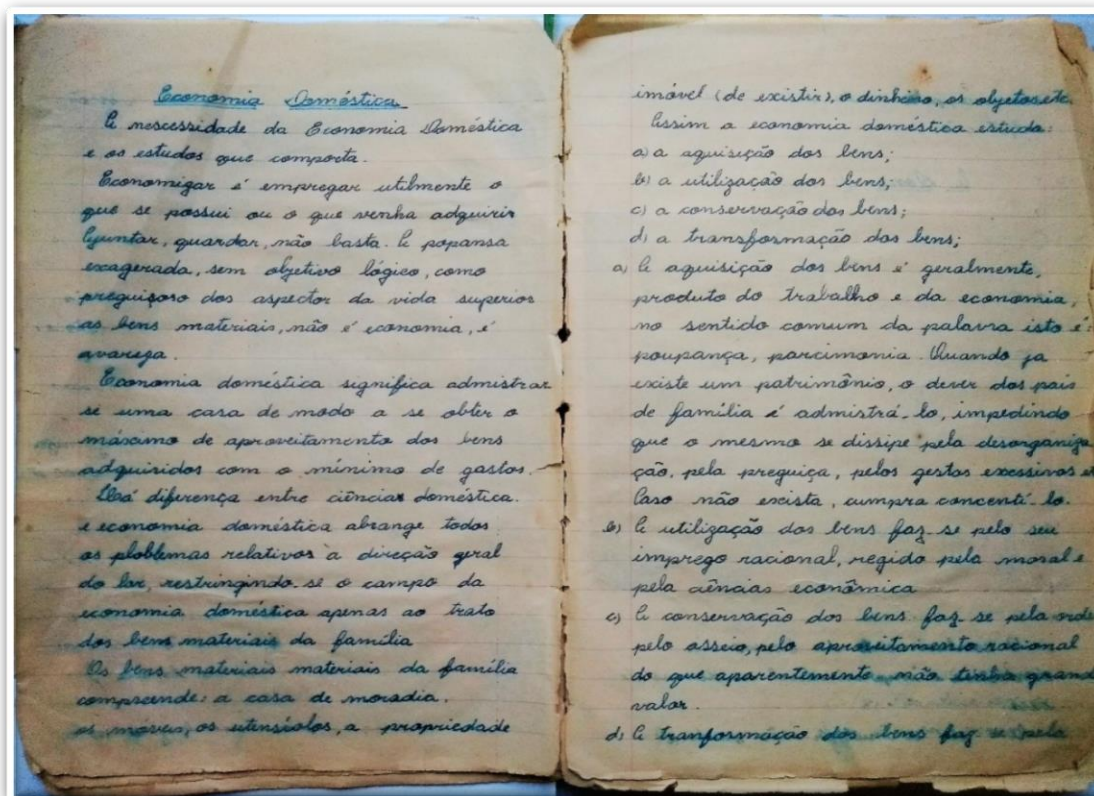 Economia Doméstica
A nescessidade da Economia Doméstica
e os estudos que comporta.
Economizar é empregar utilmente o
que se possui ou o que venha adquirir
Ajuntar, guardar, não basta. A popansa
exagerada, sem objetivo lógico, como
preguiçoso dos aspector da vida superior
as bens materiais, não é economia, é
avareza.
Economia doméstica significa admistrar
se uma casa de modo a se obter o
máximo de aproveitamento dos bens
adquiridos com o mínimo de gastos.
Há diferença entre ciências doméstica.
e economia doméstica abrange todos
os ploblemas relativos à direção geral
do lar, restringindo-se o campo da
economia doméstica apenas ao trato
dos bens materiais da família
Os bens materiais materiais da família
compreende: a casa de moradia,
os móveis, os utensíolos, a propriedade
imóvel (de existir), o dinheiro, os objetos, etc.
Assim a economia doméstica estuda:
a) a aquisição dos bens;
b) a utilização dos bens;
c) a conservação dos bens;
d) a transformação dos bens;
a) A aquisição dos bens é geralmente,
produto do trabalho e da economia,
no sentido comum da palavra isto é:
poupança, parcimonia. Quando ja
existe um patrimônio, o dever dos pais
de família é admistrá-lo, impedindo
que o mesmo se dissipe pela desorganiza
ção, pela preguiça, pelos gestos excessivos
Caso não exista, cumpra concentí-lo.
b) A utilização dos bens faz-se pelo seu
imprego racional, regido pela moral e
pela ciências econômica
c) A conservação dos bens faz-se pela
pelo asseio, pelo aproveitamento racional
do que aparentemente não tinha grand
valor.
d) A tranformação dos bens faz se pela